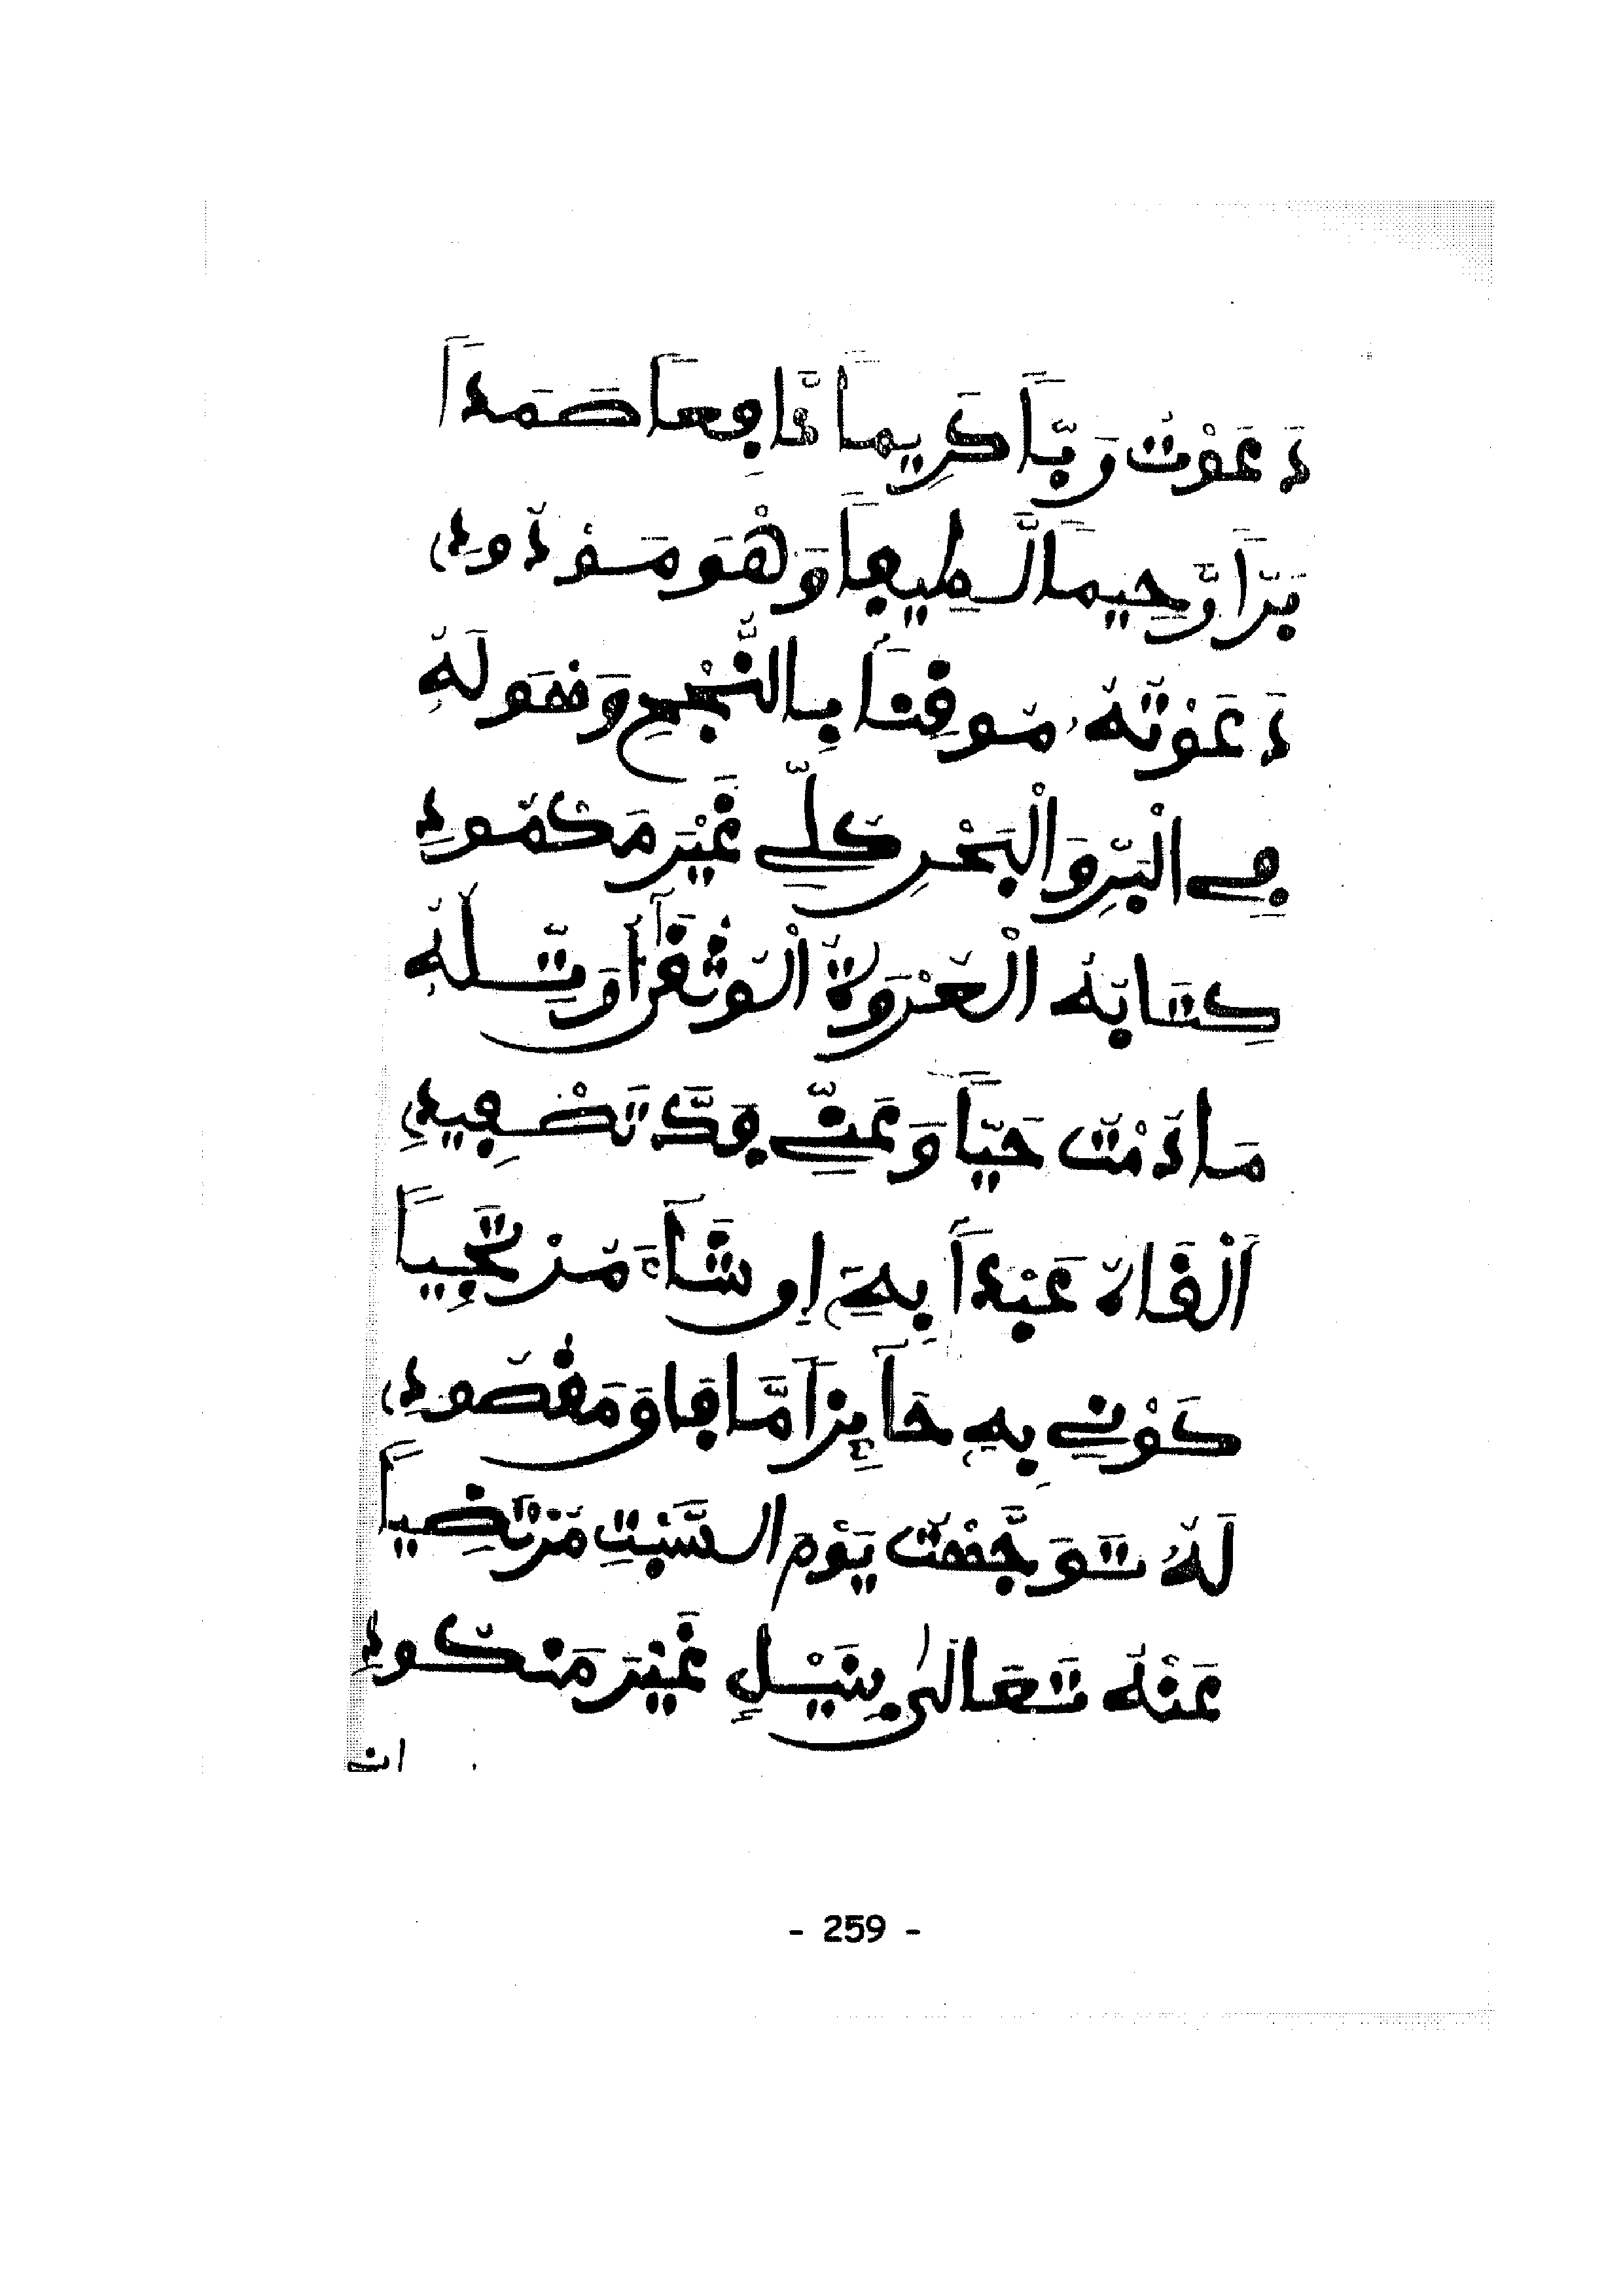 دَعَوْتُ رَبّاً كَرِيماً نَّافِعاً صَمَداً
بَرّاً رَّحِيماً لَطِيفاً وَهْوَ مَوْدُودِ
دَعَوْتُهُ مُوقِناً بِالنُّجْحِ وَهْوَ لَهُ
فِي الْبَرِّ وَالْبَحْرِ كُلِّي غَيْرَ مَكْمُودِ
كِتَابُهُ الْعُرْوَةُ الْوُثْقَىٰ أُرَتِّلُهُ
مَا دُمْتُ حَيّاً وَعَنِّي فَكَّ تَصْفِيدِ
أَنْقَاهُ عَبْداً بِهِ إِن شَاءَ مَن تُجِيباً
كَوْنِي بِهِ حَائِزاً مَّا فَاقَ مَقْصُودِ
لَهُ تَوَجَّهْتُ يَوْمَ السَّبْتِ مُرْتَضِياً
عَنْهُ تَعَالَىٰ بِنَيْلٍ غَيْرَ مَنْكُودِ
ان
- 259 -